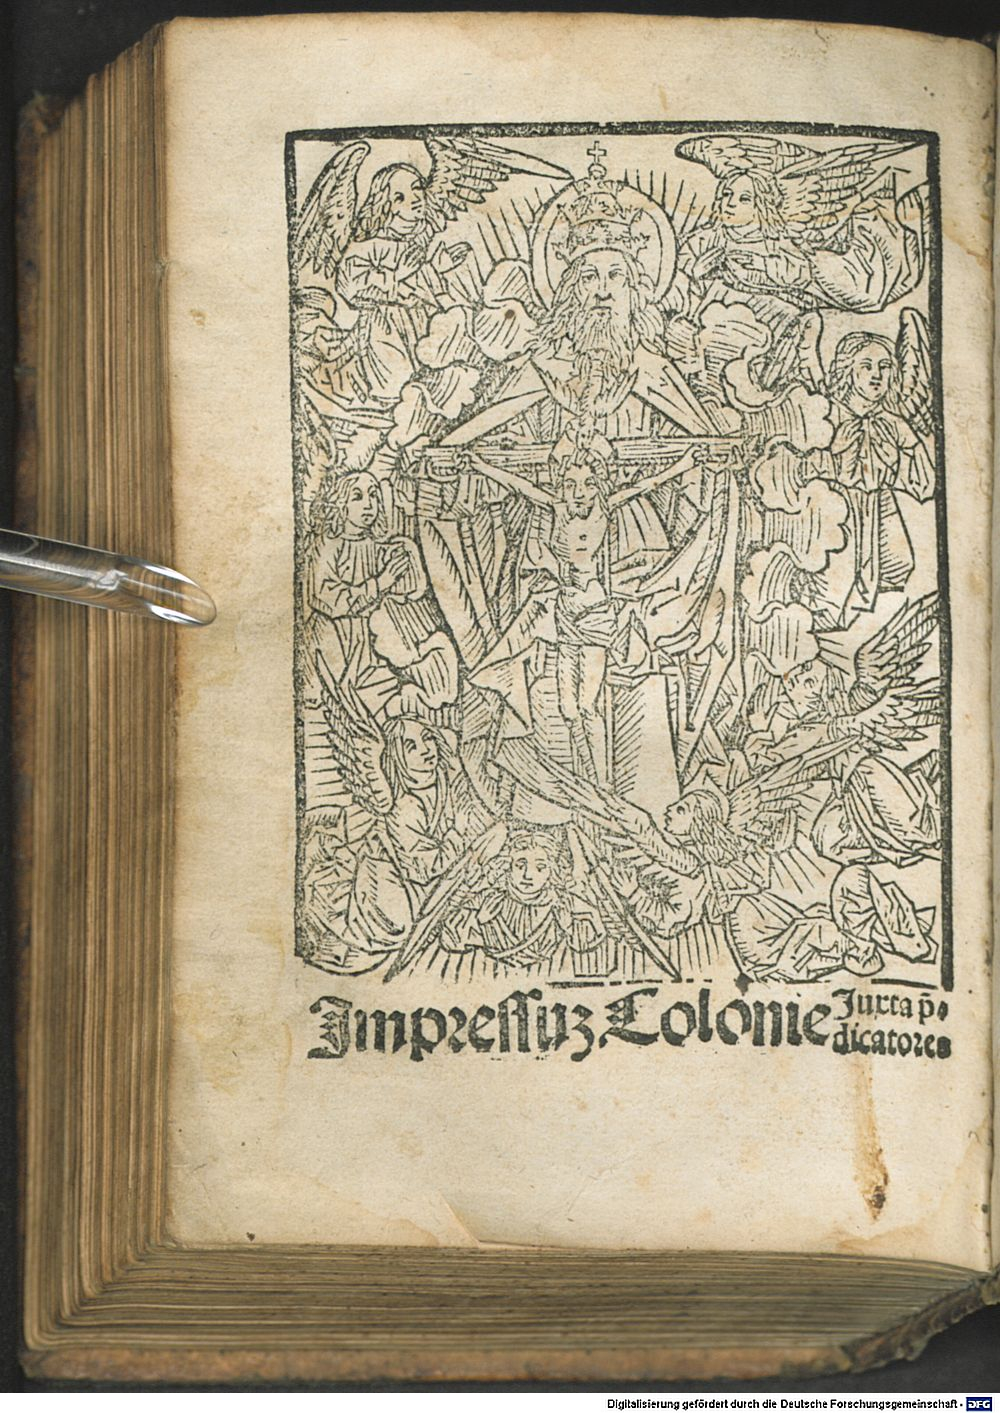 Impressuz Colonie Juxta p̄⸗
dicatores
Digitalisierung gefördert durch die Deutsche Forschungsgemeinschaft - DFG